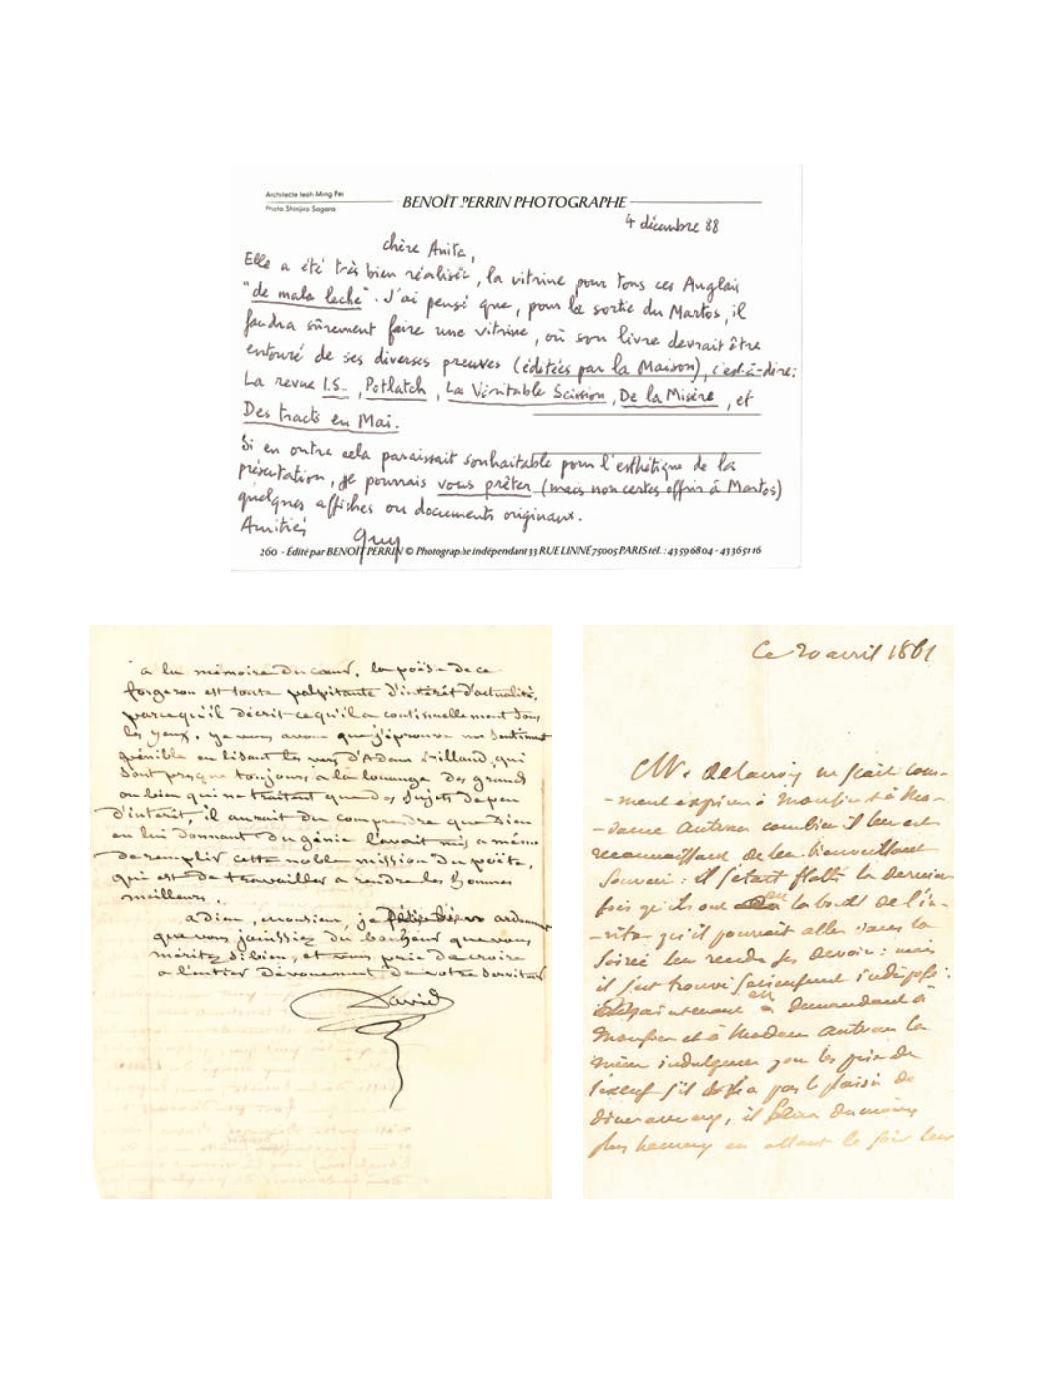 Architecte Ieoh Ming Pei
Photo Shinjiro Sagara
BENOÎT PERRIN PHOTOGRAPHE
4 décembre 88
chère Anita,
Elle a été très bien réalisée, la vitrine pour tous ces Anglais
"de mala leche". J'ai pensé que, pour la sortie du Martos, il
faudra sûrement faire une vitrine, où son livre devrait être
entouré de ses diverses preuves (éditées par la Maison), c'est-à-dire:
La revue I.S., Potlatch, La Véritable Scission, De la Misère, et
Des tracts en Mai.
Si en outre cela paraissait souhaitable pour l'esthétique de la
présentation, je pourrais vous prêter (mais non certes offrir à Martos)
quelques affiches ou documents originaux.
Amitiés
Guy
260 - Édité par BENOÎT PERRIN © Photographe indépendant 33 RUE LINNÉ 75005 PARIS tél. : 43 59 68 04 - 43 36 51 16
a la mémoire du cœur, la poësie de ce
forgeron est toute palpitante d'intérêt d'actualité,
parcequ'il décrit ce qu'il a continuellement sous
les yeux. je vous avoue que j'éprouve un sentiment
pénible en lisant les vers d'Adam Billaud, qui
sont presque toujours à la louange des grands
ou bien qui ne traitent que des sujets de peu
d'intérêt, il aurait du comprendre que Dieu
en lui donnant du génie l'avait mis a même
de remplir cette noble mission du poëte,
qui est de travailler a rendre les hommes
meilleurs.
adieu, monsieur, je désire ardemment
que vous jouissiez du bonheur que vous
méritez si bien, et vous prie de croire
a l'entier dévouement de votre serviteur
David
Ce 20 avril 1861
Mr. Delacroix ne sçait com-
-ment exprimer à Monsieur & à Ma-
-dame Autran combien il leur est
reconnaissant de leur bienveillant
souvenir : il s'était flatté la dernière
fois qu'ils ont eu la bonté de l'in-
-viter qu'il pourrait aller dans la
soirée leur rendre ses devoirs : mais
il s'est trouvé sérieusement indisposé :
maintenant en demandant à
Monsieur et à Madame Autran la
même indulgence il les prie de
l'excuser s'il n'a pas le plaisir de
diner avec eux, il sera du moins
plus heureux en allant le soir leur